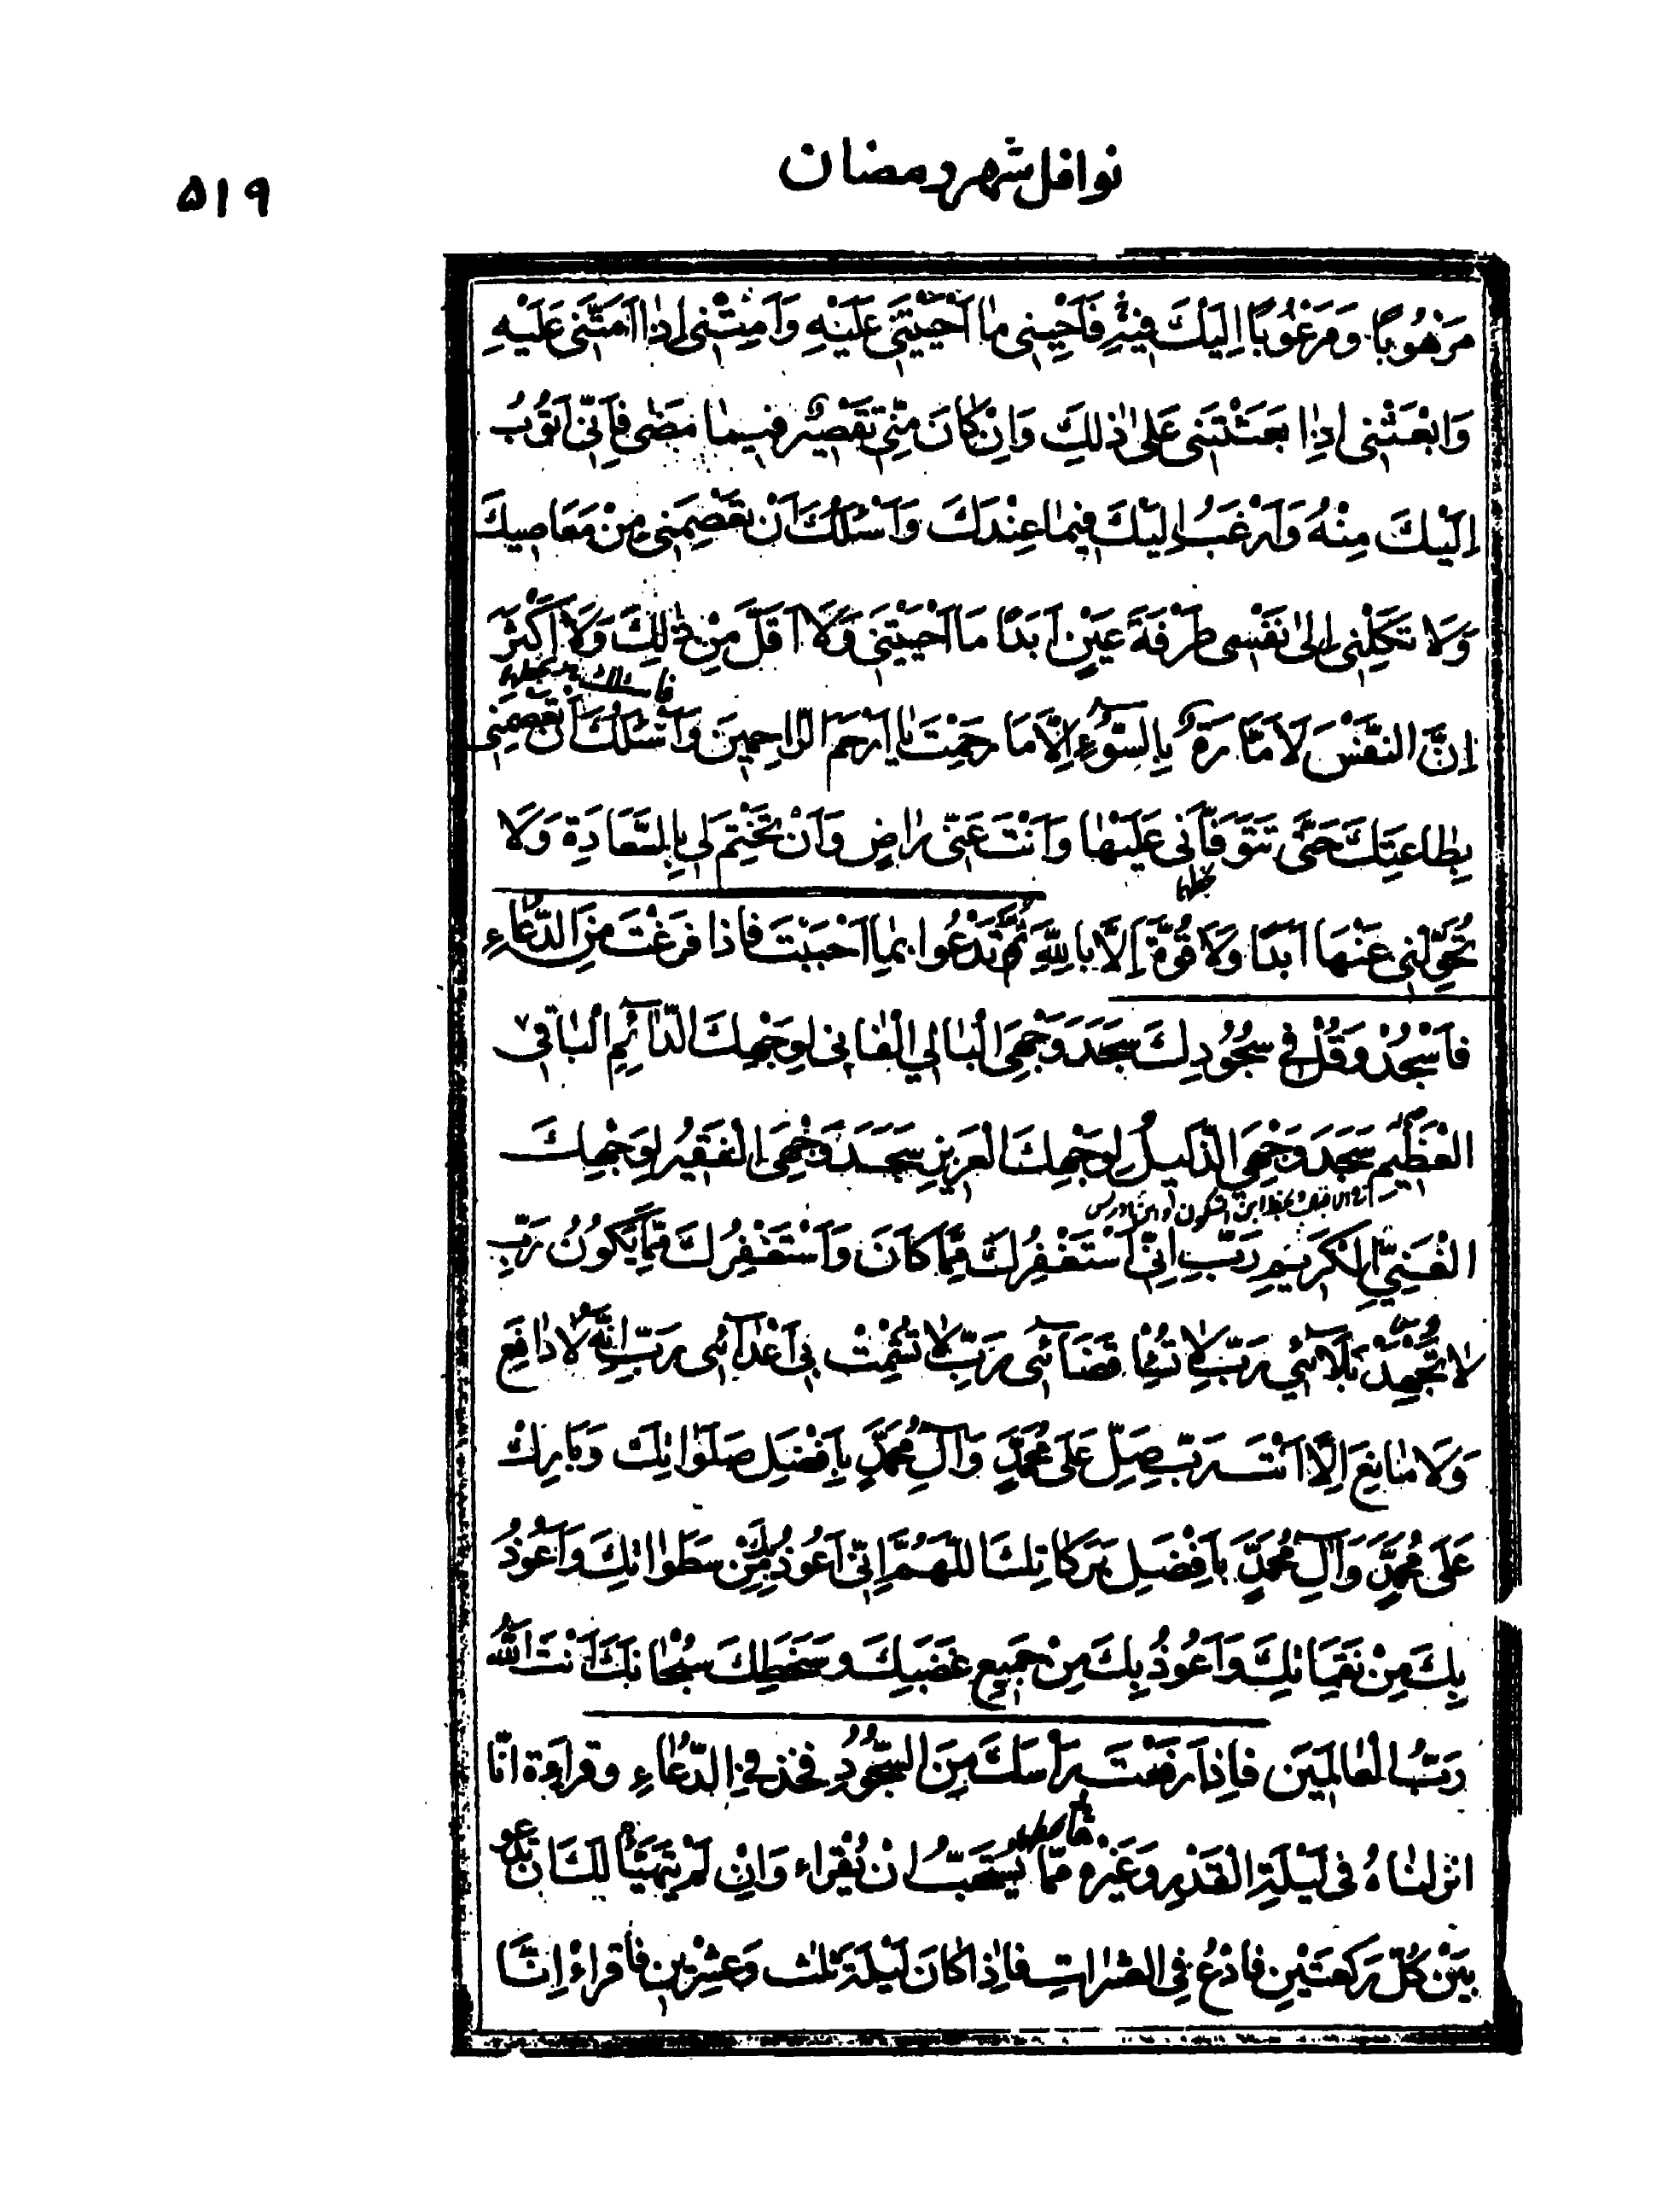 نوافل شهر رمضان
۵۱۹
مَرْهُوبًا وَمَرْغُوبًا اِلَيْكَ فِيهِ فَاَحْيِنِى مٰا اَحْيَيْتَنِى عَلَيْهِ وَاَمِتْنِى اِذٰا اَمَتَّنِى عَلَيْهِ
وَابْعَثْنِى اِذٰا بَعَثْتَنِى عَلىٰ ذٰلِكَ وَاِنْ كٰانَ مِنِّى تَقْصِيرٌ فِيمٰا مَضىٰ فَاِنِّى اَتُوبُ
اِلَيْكَ مِنْهُ وَاَرْغَبُ اِلَيْكَ فِيمٰا عِنْدَكَ وَاَسْئَلُكَ اَنْ تَعْصِمَنِى مِنْ مَعَاصِيكَ
وَلَا تَكِلْنِى اِلىٰ نَفْسِى طَرْفَةَ عَيْنٍ اَبَدًا مَا اَحْيَيْتَنِى وَلَا اَقَلَّ مِنْ ذٰلِكَ وَلَا اَكْثَرَ
اِنَّ النَّفْسَ لَاَمَّارَةٌ بِالسُّوٓءِ اِلَّا مَا رَحِمْتَ يٰا اَرْحَمَ الرّٰاحِمِينَ وَاَسْئَلُكَ اَنْ تَعْصِمَنِى
بِطٰاعَتِكَ حَتّىٰ تَتَوَفّٰانِى عَلَيْهٰا وَاَنْتَ عَنِّى رٰاضٍ وَاَنْ تَخْتِمَ لِى بِالسَّعَادَةِ وَلَا
تُحَوِّلْنِى عَنْهَا اَبَدًا وَلَا قُوَّةَ اِلَّا بِاللّٰهِ ثُمَّ تَدْعُوا بِمٰا اَحْبَبْتَ فَاِذا فَرَغْتَ مِنَ الدُّعٰاءِ
فَاسْجُدْ وَقُلْ فِى سُجُودِكَ سَجَدَ وَجْهِىَ الْبٰالِي الْفٰانِى لِوَجْهِكَ الدّٰائِمِ الْبٰاقِى
الْعَظِيمِ سَجَدَ وَجْهِىَ الذَّلِيلُ لِوَجْهِكَ الْعَزِيزِ سَجَدَ وَجْهِىَ الْفَقِيرُ لِوَجْهِكَ
الْغَنِيِّ الْكَرِيمِ رَبِّ اِنِّى اَسْتَغْفِرُكَ مِمَّا كٰانَ وَاَسْتَغْفِرُكَ مِمَّا يَكُونُ رَبِّ
لٰا تُجْهِدْ بَلَائِي رَبِّ لٰا تُسِئْ قَضَائِى رَبِّ لٰا تُشْمِتْ بِى اَعْدٰائِى رَبِّ اِنَّهُ لَا دٰافِعَ
وَلَا مٰانِعَ اِلَّا اَنْتَ رَبِّ صَلِّ عَلىٰ مُحَمَّدٍ وَآلِ مُحَمَّدٍ بِاَفْضَلِ صَلَوٰاتِكَ وَبَارِكْ
عَلىٰ مُحَمَّدٍ وَآلِ مُحَمَّدٍ بِاَفْضَلِ بَرَكٰاتِكَ اللّٰهُمَّ اِنِّى اَعُوذُ بِكَ مِنْ سَطَوٰاتِكَ وَاَعُوذُ
بِكَ مِنْ نَقِمَاتِكَ وَاَعُوذُ بِكَ مِنْ جَمِيعِ غَضَبِكَ وَسَخَطِكَ سُبْحٰانَكَ اَنْتَ اللّٰهُ
رَبُّ الْعٰالَمِينَ فَاِذٰا رَفَعْتَ رَأْسَكَ مِنَ السُّجُودِ فَخُذْ فِى الدُّعٰاءِ وقراءة انّا
انزلناهُ فى لَيْلَةِ الْقَدْرِ وَغَيْرِهِ مِمّا يُسْتَحَبُّ اَنْ يُقْراء وَاِنْ لَمْ يَتَهَيَّأ لَكَ اَنْ تَدْعُو
بَيْنَ كُلِّ رَكْعَتَيْنِ فَادْعُ فِى الْعَشَرٰاتِ فَاِذٰا كٰانَ لَيْلَةَ ثَلٰث وَعِشْرِينَ فَاقراءْ اِنَّا